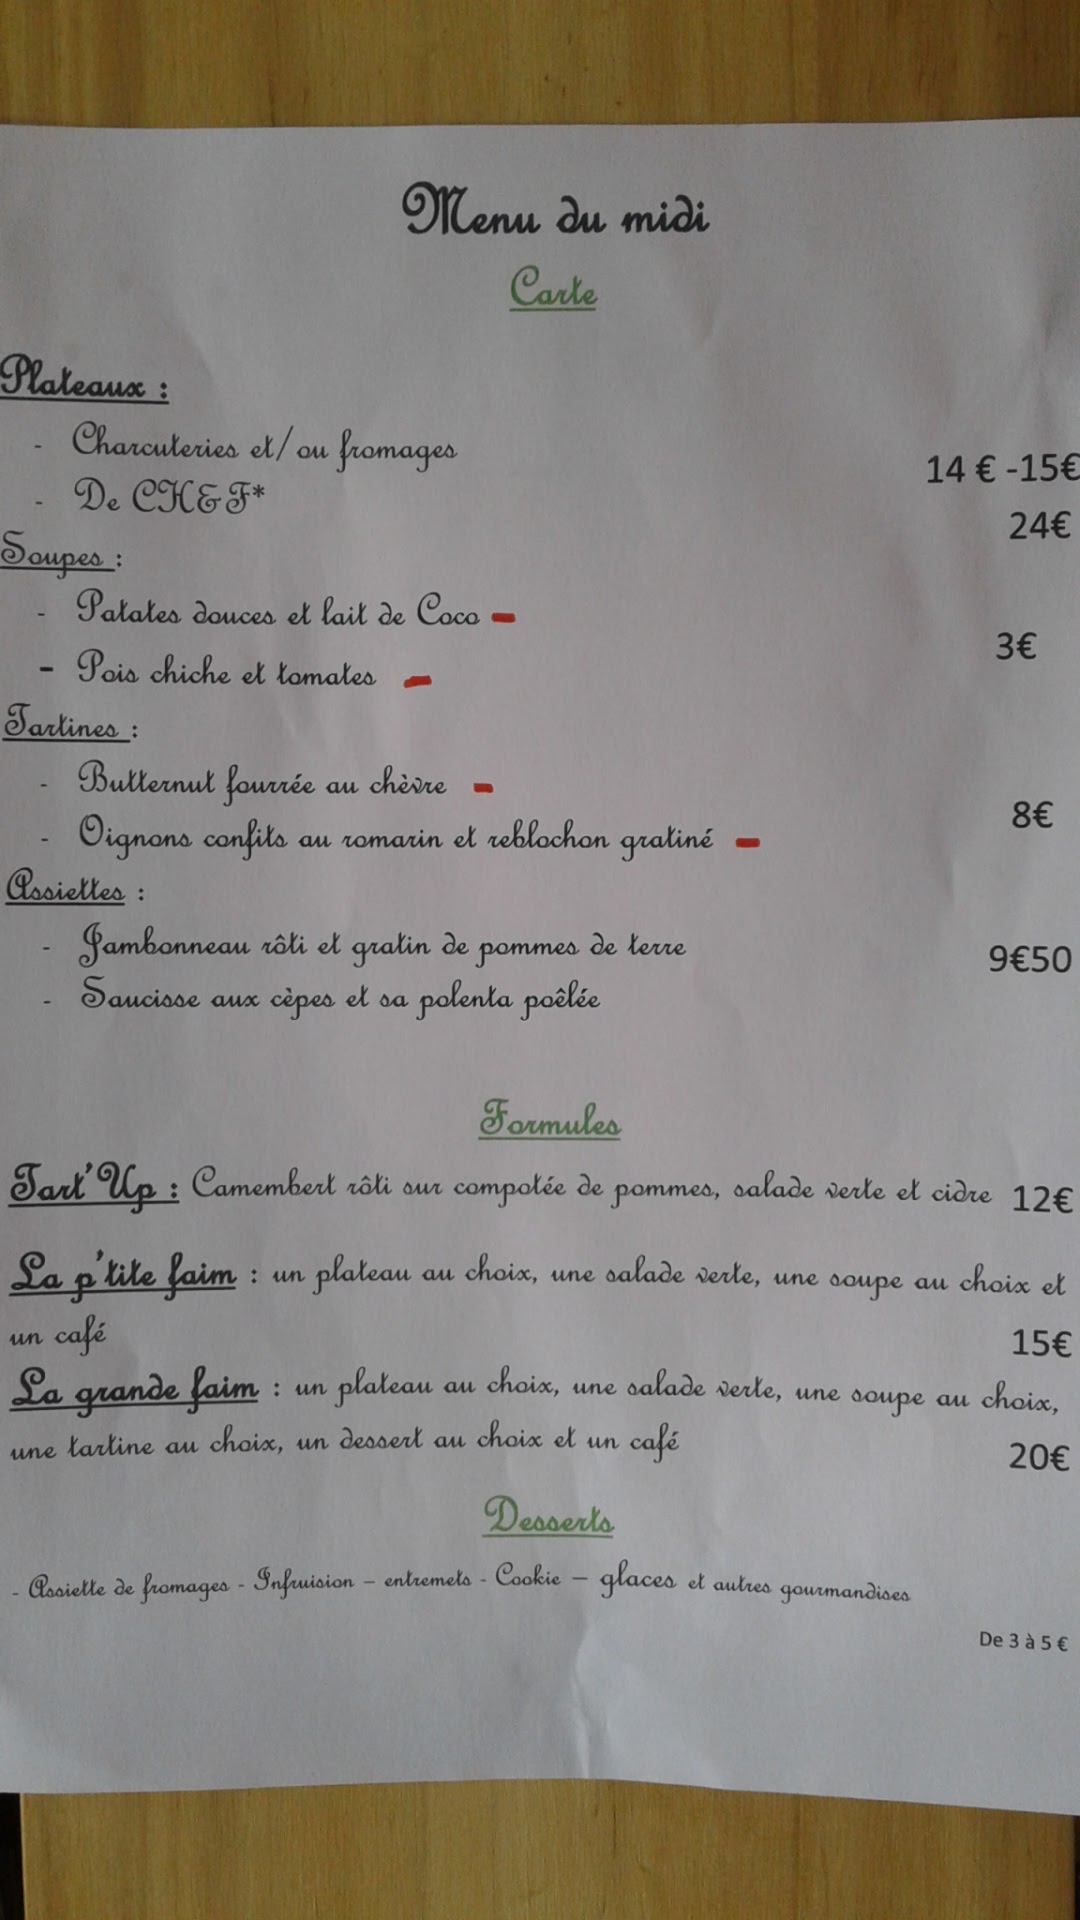 Menu du midi
Carte
Plateaux :
- Charcuteries et/ou fromages 14 € -15€
- De CH&F* 24€
Soupes :
- Patates douces et lait de Coco
3€
- Pois chiche et tomates
Tartines :
- Butternut fourrée au chèvre
8€
- Oignons confits au romarin et reblochon gratiné
Assiettes :
- Jambonneau rôti et gratin de pommes de terre 9€50
- Saucisse aux cèpes et sa polenta poêlée
Formules
Tart'Up : Camembert rôti sur compotée de pommes, salade verte et cidre 12€
La p'tite faim : un plateau au choix, une salade verte, une soupe au choix et
un café 15€
La grande faim : un plateau au choix, une salade verte, une soupe au choix,
une tartine au choix, un dessert au choix et un café 20€
Desserts
- Assiette de fromages - Infruision – entremets - Cookie – glaces et autres gourmandises
De 3 à 5 €